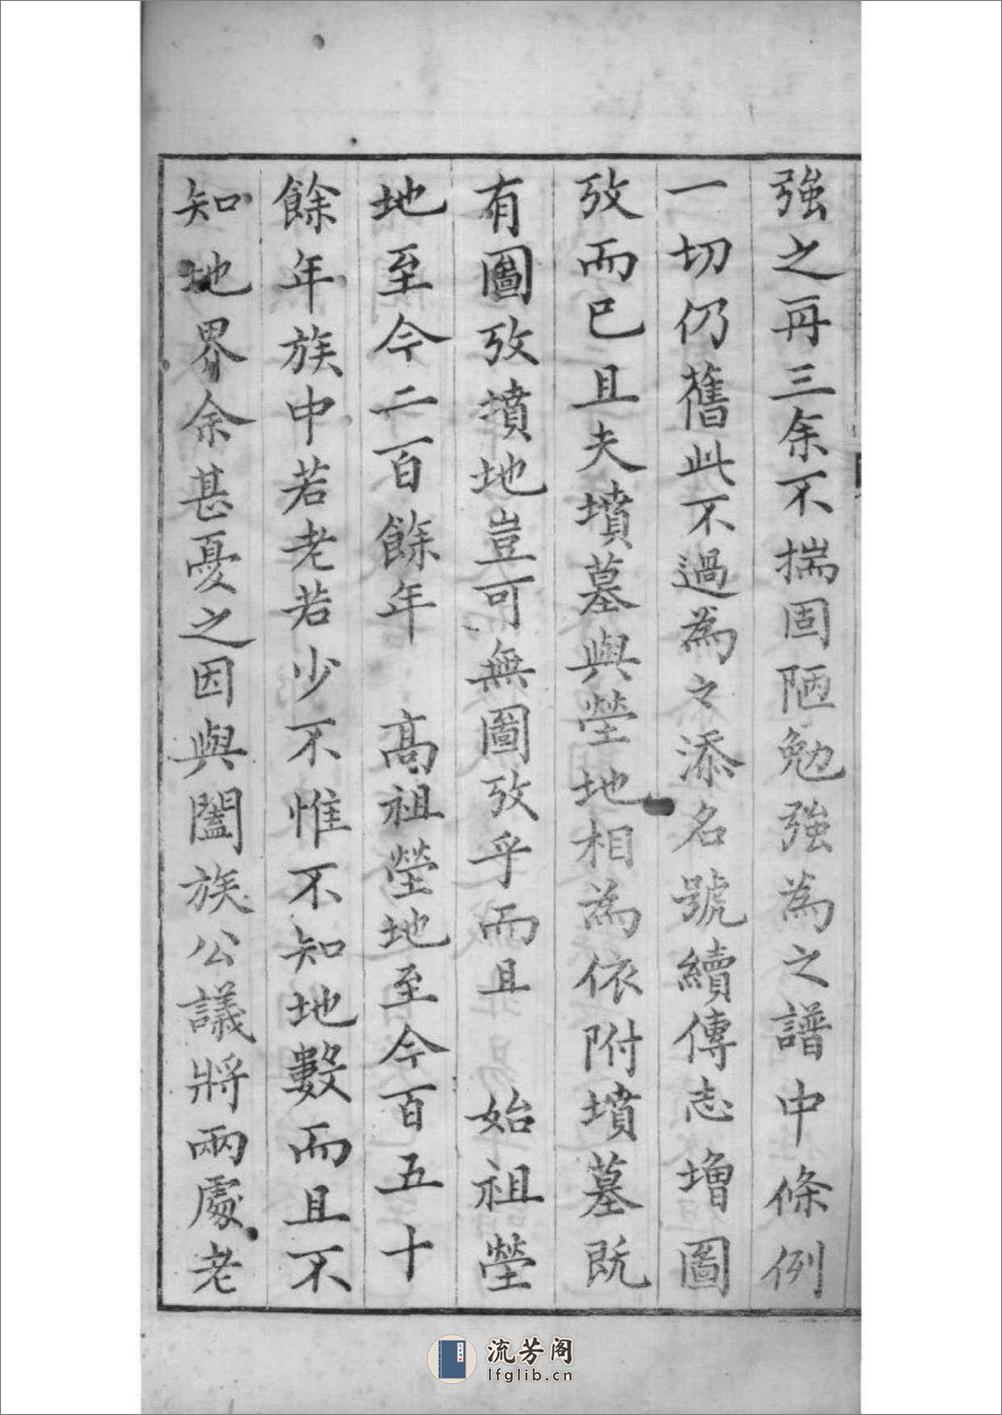 強之再三余不揣固陋勉強為之譜中條例
一切仍舊此不過為之添名號續傳志增圖
攷而已且夫墳墓與塋地相為依附墳墓既
有圖攷墳地豈可無圖攷乎而且　始祖塋
地至今二百餘年　高祖塋地至今百五十
餘年族中若老若少不惟不知地數而且不
知地界余甚憂之因與闔族公議將兩處老
流芳阁
lfglib.cn